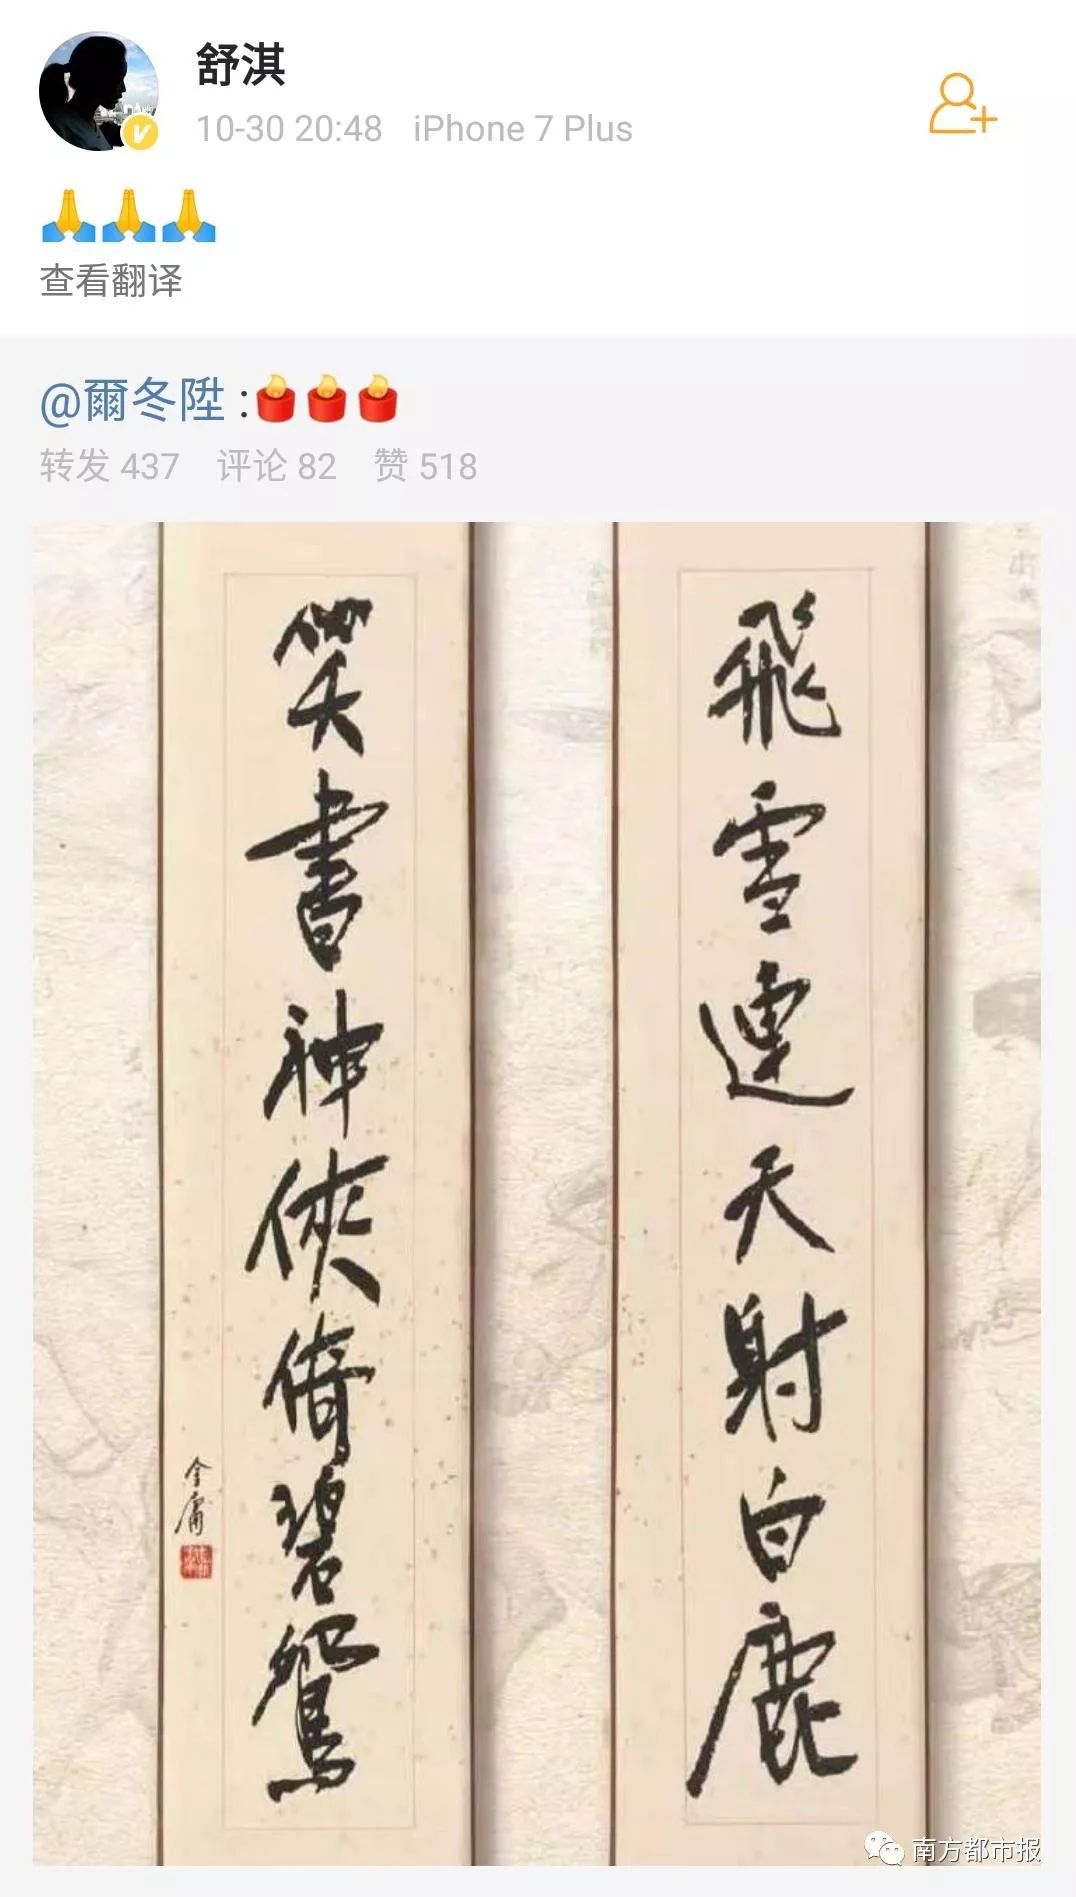 舒淇
10-30 20:48 iPhone 7 Plus
🙏🙏🙏
查看翻译
@爾冬陞 :🕯🕯🕯
转发 437 评论 82 赞 518
飛雪連天射白鹿
笑書神俠倚碧鴛
金庸
南方都市报